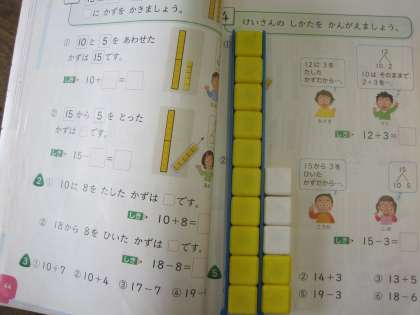 に かずを かきましょう。
① 10 と 5 を あわせた
かずは 15 です。
しき 10+ =
② 15 から 5 を とった
かずは です。
しき 15- =
2 ① 10に 8を たした かずは です。
しき 10+8=
② 18から 8を ひいた かずは です。
しき 18-8=
3 ① 10+7 ② 10+4 ③ 17-7 ④ 19-
44
4 けいさんの しかたを かんがえましょう。
①
12に 3を
たした
かずだから…。
12
10 2
10は そのままで
2+3を…。
しき 12+3=
②
15から 3を
ひいた
かずだから…。
15
10 5
しき 15-3=
5
② 14+3 ③ 13+5
⑤ 19-3 ⑥ 18-6